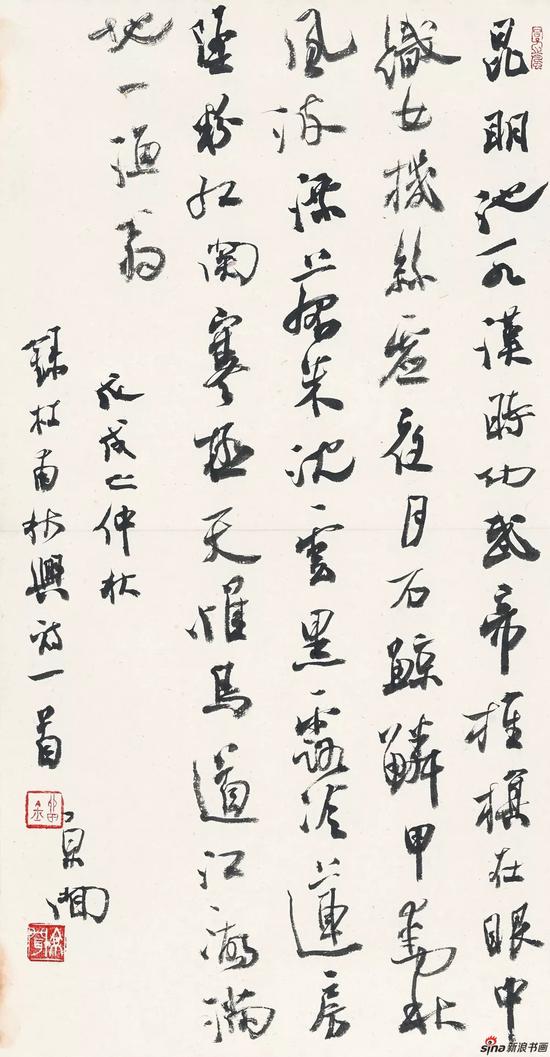 昆明池水漢時功武帝旌旗在眼中
織女機絲虛夜月石鯨鱗甲動秋
風波漂菰米沈雲黑露冷蓮房
墜粉紅關塞極天惟鳥道江湖滿
地一漁翁
戊戌仲秋
錄杜甫秋興詩一首
sina新浪书画